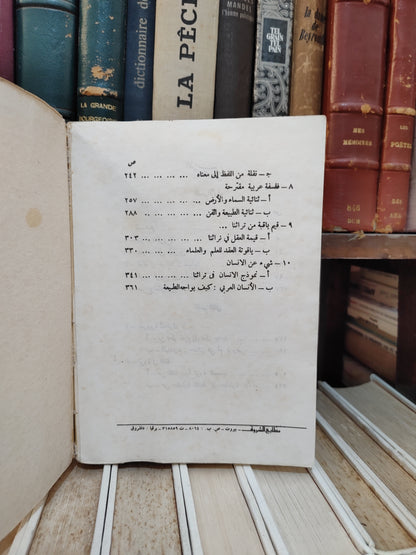 dictionnaire de
LA PÊCHE
MANDEL
l'énigme politique
TEL
GRAIN
TEL
PAIN
LA GRANDE
BOURGEOISE
MES
MÉMOIRES
LES
846
ص
جـ - نقلة من اللفظ إلى معناه ... ... ... ... ٢٤٢
٨ - فلسفة عربية مقترحة
أ - ثنائية السماء والأرض ... ... ... ... ٢٥٧
ب - ثنائية الطبيعة والفن ... ... ... ... ٢٨٨
٩ - قيم باقية من تراثنا ...
أ - قيمة العقل في تراثنا ... ... ... ٣٠٣
ب - ياقوتة العقد للعلم والعلماء ... ... ٣٣٠
١٠ - شيء عن الانسان
أ - نموذج الانسان في تراثنا ... ... ... ٣٤١
ب - الأنسان العربي : كيف يواجه الطبيعة ٣٦١
مطابع الشروق بيروت - ص. ب. : ٨٠٦٤ - ت ٣١٨٨٥٩ - برقيا : داشروق